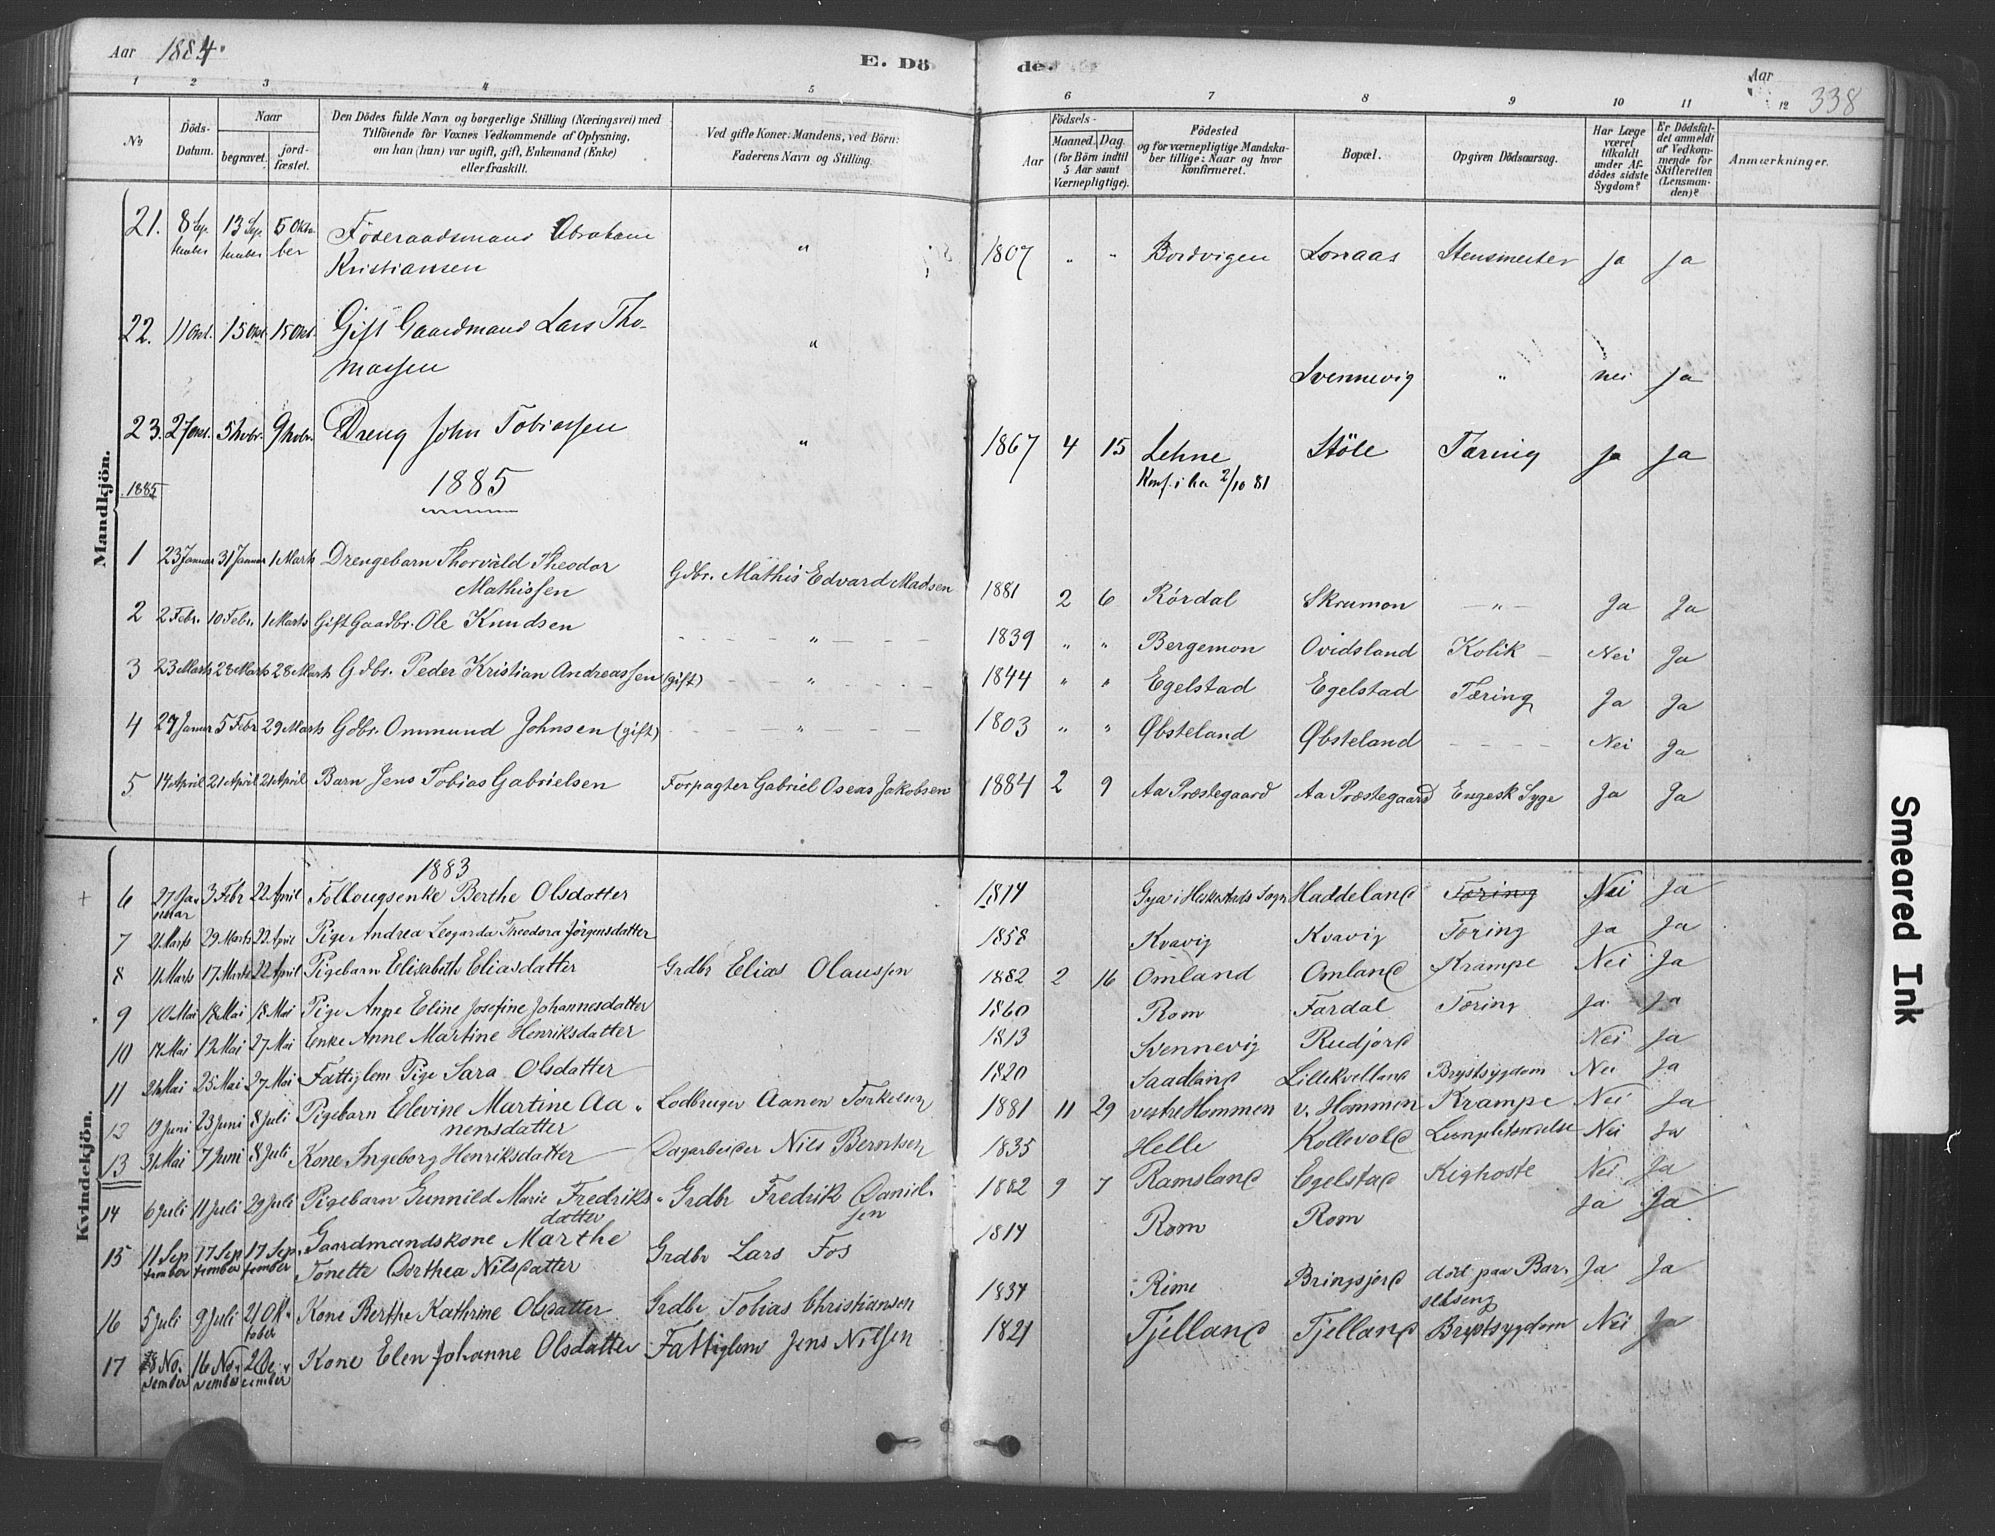 Aar 1884.
E. Dö
de.
Aar
338
1 2 3 4 5 6 7 8 9 10 11 12
No
Döds-Datum.
Naar
begravet.
jord-fæstet.
Den Dödes fulde Navn og borgerlige Stilling (Næringsvei) med
Tilföiende for Voxnes Vedkommende af Oplysning,
om han (hun) var ugift, gift, Enkemand (Enke)
eller fraskilt.
Ved gifte Koner: Mandens, ved Börn:
Faderens Navn og Stilling.
Födsels-
Aar
Maaned. Dag.
(for Börn indtil
5 Aar samt
Værnepligtige).
Födested
og for værnepligtige Mandska-
ber tillige: Naar og hvor
konfirmeret.
Bopæl.
Opgiven Dödsaarsag.
Har Læge
været
tilkaldt
under Af-
dödes sidste
Sygdom?
Er Dödsfal-
det anmeldt
af Vedkom-
mende for
Skifteretten
(Lensman-
den)?
Anmærkninger.
Mandkjön.
21. 8 September 13 September 5 Oktober Föderaadsmand Abraham Kristiansen " 1807 " " Bordvigen Lonaas Stensmerter Ja Ja
22. 11 Okt. 15 Okt. 15 Okt. Gift Gaardmand Lars Tho-
massen " Svennevig " Nei Ja
23. 27 Okt. 5 Novbr. 9 Novbr. Dreng John Tobiassen " 1867 4 15 Lehne Stöle Tæring Ja Ja
Konf. i 2/10 81
1885 1885
1 23 Januar 31 Januar 1 Marts Drengebarn Thorvald Theodor
Mathissen Gdbr. Mathis Edvard Madsen 1881 2 6 Rördal Skrumon — " — Ja Ja
2 2 Febr. 10 Febr. 1 Marts Gift Gaadbr. Ole Knudsen " 1839 " " Bergemon Ovidsland Kolik — Nei Ja
3 23 Marts 28 Marts 28 Marts Gdbr. Peder Kristian Andreassen (gift) " 1844 " " Egelstad Egelstad Tæring Ja Ja
4 27 Januar 5 Febr 29 Marts Gdbr. Ommund Johnsen (gift) " 1803 " " Øbsteland Øbsteland Nei Ja
5 14 April 21 April 21 April Barn Jens Tobias Gabrielsen Forpagter Gabriel Oseas Jakobsen 1884 2 9 Aa Præstegaard Aa Præstegaard Engelsk Syge Ja Ja
Kvindekjön.
1883
+ 6 27 Januar 3 Febr 22 April Follougsenke Berthe Olsdatter 1814 Gya i Heskestads Sogn Haddeland Tæring Nei Ja
7 21 Marts 29 Marts 22 April Pige Andrea Leogarda Theodora Jörgensdatter 1858 Kvavig Kvavig Tæring Ja Ja
8 11 Marts 17 Marts 22 April Pigebarn Elisabeth Eliasdatter Grdbr Elias Olaussen 1882 2 16 Omland Omland Krampe Nei Ja
9 10 Mai 18 Mai 18 Mai Pige Anne Eline Josefine Johannesdatter 1860 Rom Fardal Tæring Ja Ja
10 14 Mai 19 Mai 27 Mai Enke Anne Martine Henriksdatter 1813 Svennevig Rudjord Nei Ja
11 21 Mai 25 Mai 27 Mai Fattiglem Pige Sara Olsdatter 1820 Saadland Lillekvelland Brystsygdom Nei Ja
12 19 Juni 23 Juni 8 Juli Pigebarn Elevine Martine Aa-
nensdatter Lodbruger Aanen Torkelsen 1881 11 29 vestre Hommen v. Hommen Krampe Nei Ja
13 31 Mai 7 Juni 8 Juli Kone Ingeborg Henriksdatter Dagarbeider Nils Berntsen 1835 Helle Kollevold Nei Ja
14 6 Juli 11 Juli 29 Juli Pigebarn Gunnild Marie Fredriks-
datter Grdbr Fredrik Daniel-
sen 1882 9 7 Ramsland Egelstad Kighoste Nei Ja
15 11 September 17 September 17 September Gaardmandskone Marthe
Tonette Dorthea Nilsdatter Grdbr Lars Fos 1814 Rom Rom Ja Ja
16 5 Juli 9 Juli 21 Oktober Kone Berthe Kathrine Olsdatter Grdbr Tobias Christiansen 1834 Rime Bringsjord död paa Bar-
selseng Ja Ja
17 November 16 November 2 December Kone Elen Johanne Olsdatter Fattiglem Jens Nilsen 1821 Tjelland Tjelland Brystsygdom Nei Ja
Smeared Ink